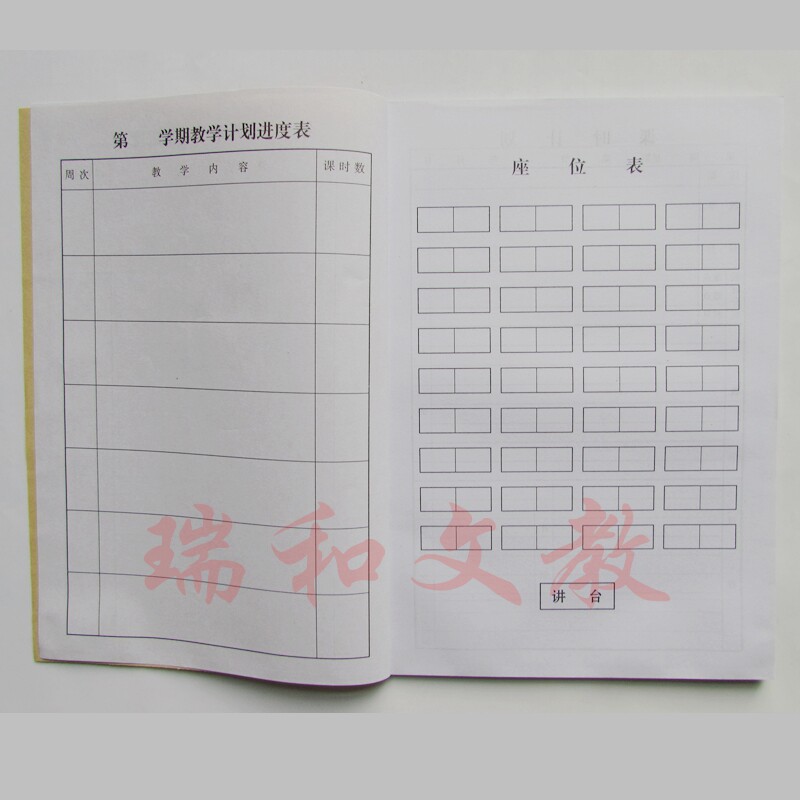 第 学期教学计划进度表
周次 教学内容 课时数
座位表
讲台
瑞和文教